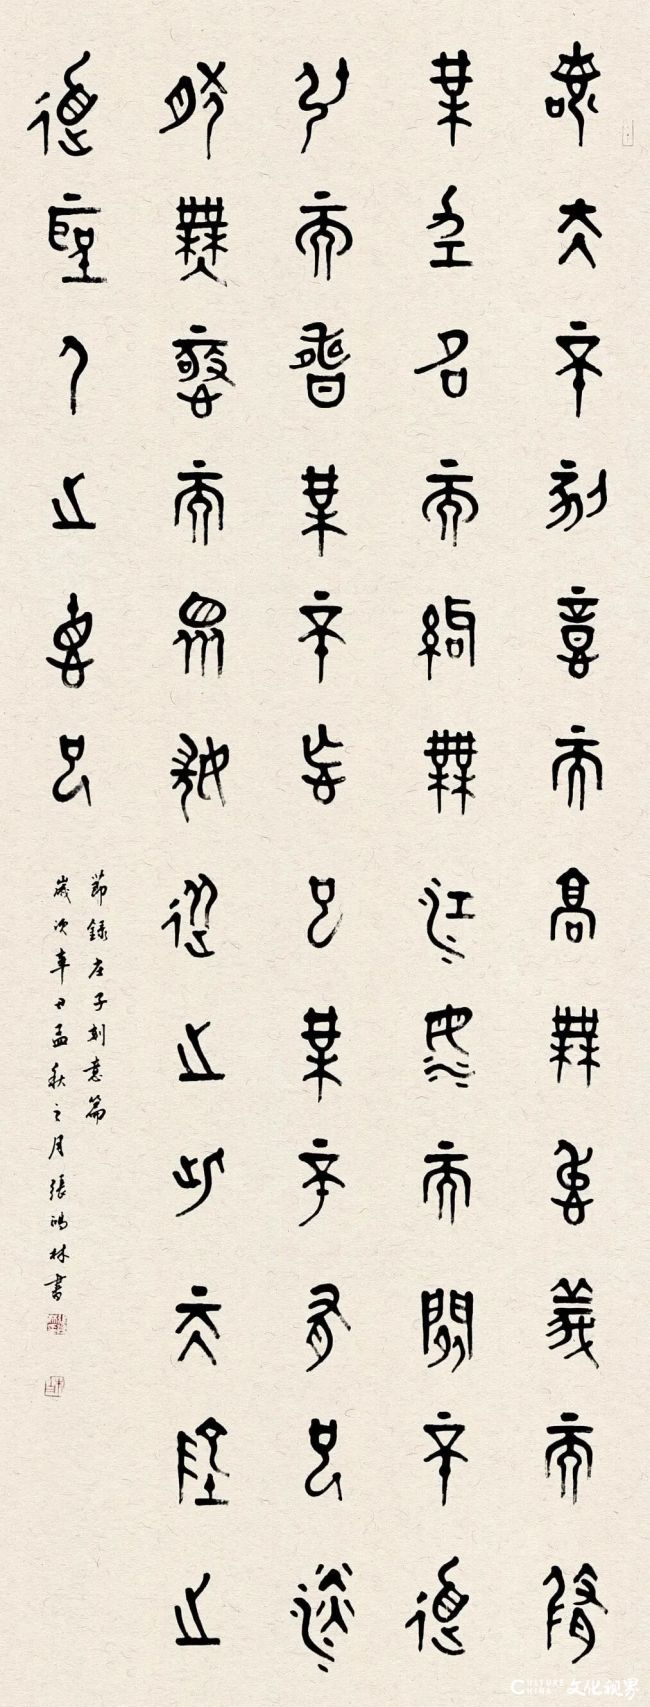 若夫不刻意而高無仁義而修
無功名而治無江海而閒不道
引而壽無不忘也無不有也澹
然無極而眾美從之此天地之
道聖人之德也
節録庄子刻意篇
歲次辛丑孟秋之月張鴻林書
CULTURE CHINA 文化视界